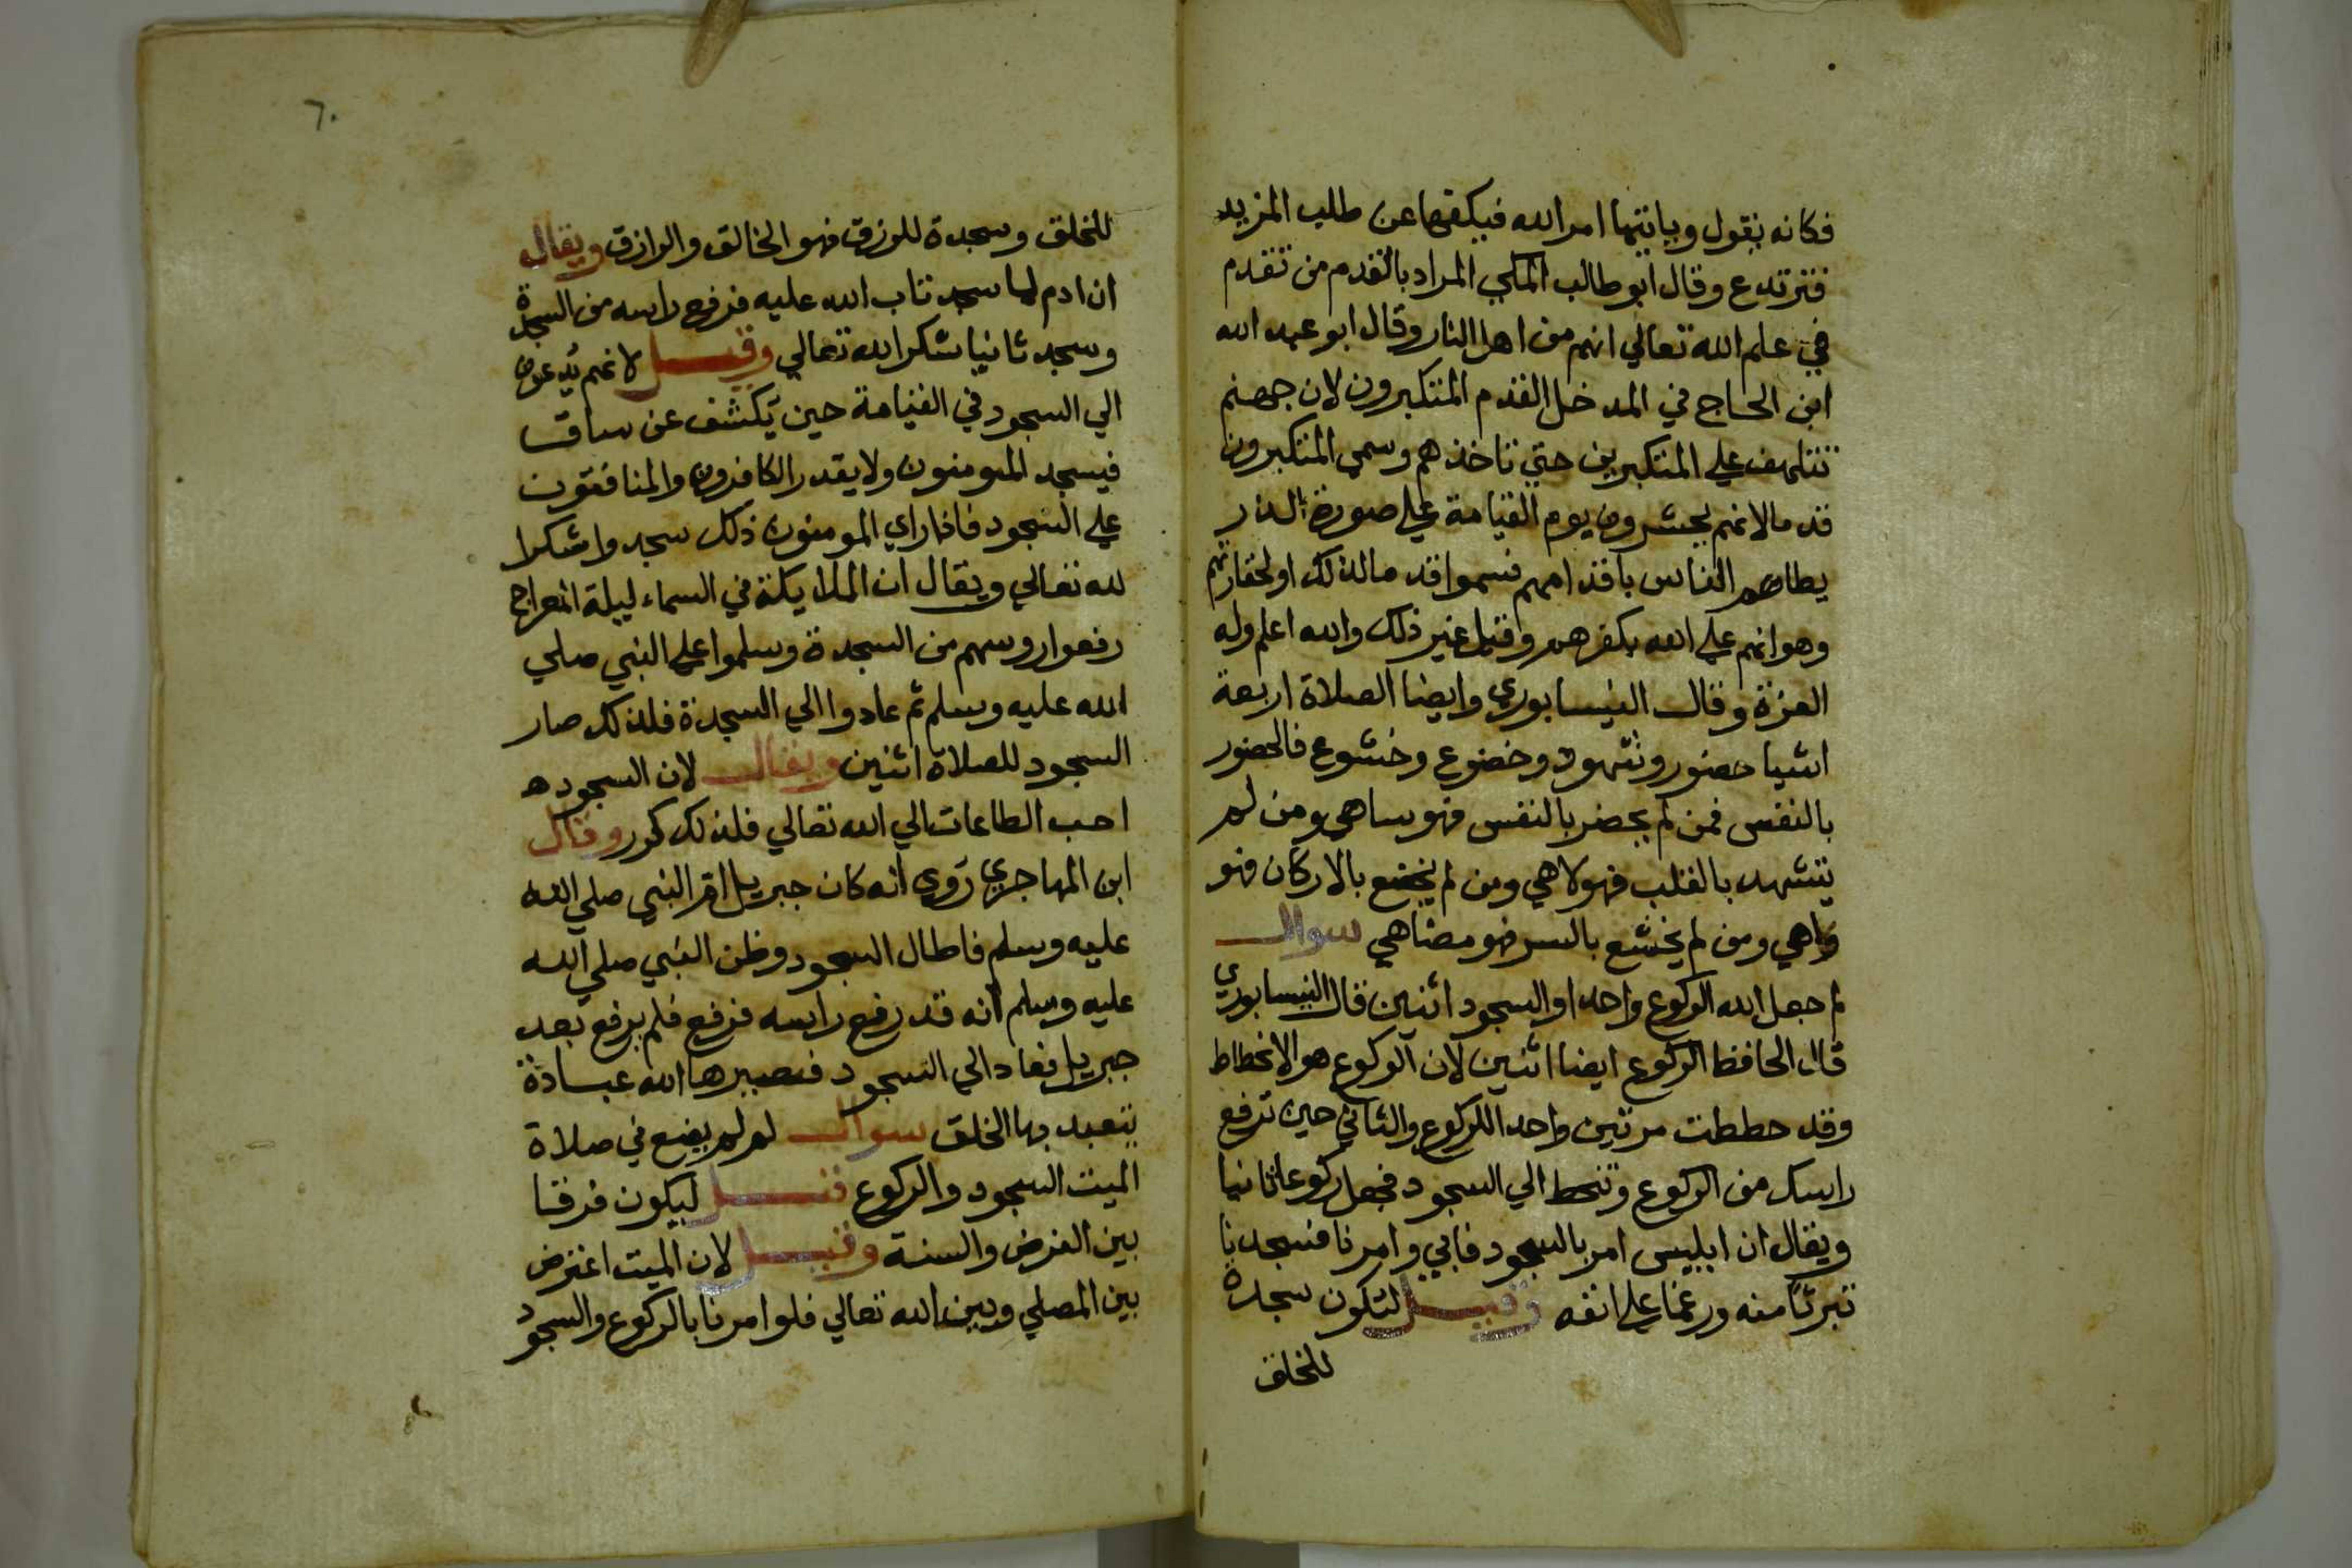 فكانه يقول وياتيها امر الله فيكفها عن طلب المزيد
فترتدع وقال ابو طالب المكي المراد بالقدم من تقدم
في علم الله تعالي انهم من اهل النار وقال ابو عبد الله
ابن الحاج في المدخل القدم المتكبرون لان جهنم
تتلهف علي المتكبرين حتي تاخذهم وسمي المتكبرون
قدما لانهم يحشرون يوم القيامة علي صورة الذر
يطاهم الناس باقدامهم فسموا قدما لذلك او لحقارتهم
وهوانهم علي الله بكفرهم وقيل غير ذلك والله اعلم وله
العزة وقال النيسابوري وايضا الصلاة اربعة
اشيا حضور وشهود وخضوع وخشوع فالحضور
بالنفس فمن لم يحضر بالنفس فهو ساهي ومن لم
يتشهد بالقلب فهو لاهي ومن لم يخضع بالاركان فهو
واهي ومن لم يخشع بالسر فهو مضاهي سوال
لم جعل الله الركوع واحدا والسجود اثنين قال النيسابوري
قال الحافظ الركوع ايضا اثنين لان الركوع هو الانحطاط
وقد حططت مرتين واحد اللركوع والثاني حين ترفع
راسك من الركوع وتنحط الي السجود فجعل ركوعا ثانيا
ويقال ان ابليس امر بالسجود فابي وامرنا فسجدنا
تبرئا منه ورغما علي انفه وقيل لتكون سجدة
للخلق
٦٠
للخلق وسجدة للرزق فهو الخالق والرازق ويقال
ان ادم لما سجد تاب الله عليه فرفع راسه من السجدة
وسجد ثانيا شكرا لله تعالي وقيل لانهم يدعون
الي السجود في القيامة حين يكشف عن ساق
فيسجد المومنون ولا يقدر الكافرون والمنافقون
علي السجود فاذا راي المومنون ذلك سجدوا شكرا
لله تعالي ويقال ان الملايكة في السماء ليلة المعراج
رفعوا روسهم من السجدة وسلموا علي النبي صلي
الله عليه وسلم ثم عادوا الي السجدة فلذلك صار
السجود للصلاة اثنين ويقال لان السجود ه
احب الطاعات الي الله تعالي فلذلك كرر وقال
ابن المهاجري روي انه كان جبريل اقر النبي صلي الله
عليه وسلم فاطال السجود وظن النبي صلي الله
عليه وسلم انه قد رفع راسه فرفع فلم يرفع بعد
جبريل فعاد الي السجود فصيرها الله عبادة
يتعبد بها الخلق سوال لم لم يضع في صلاة
الميت السجود والركوع قيل ليكون فرقا
بين الفرض والسنة وقيل لان الميت اعترض
بين المصلي وبين الله تعالي فلو امرنا بالركوع والسجود